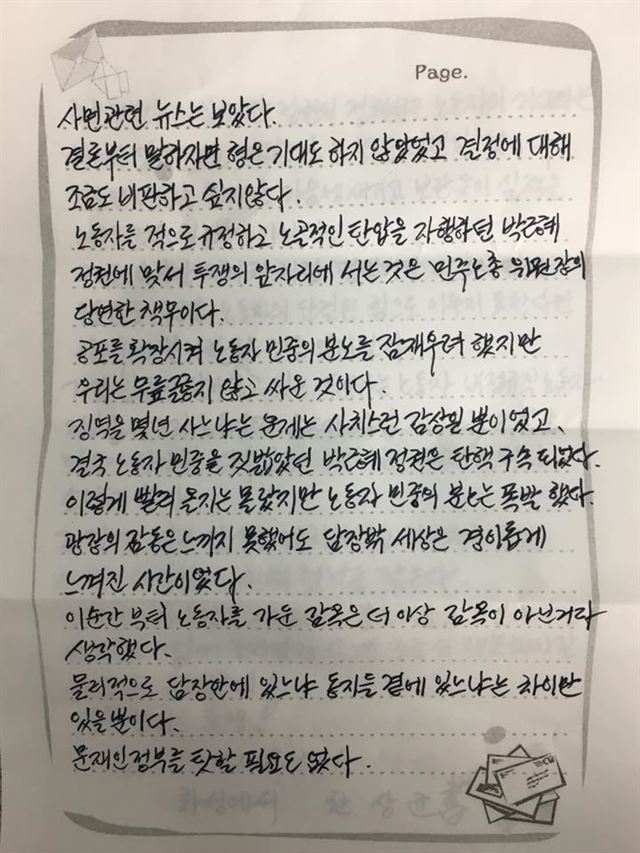 Page.
사면관련 뉴스는 보았다.
결론부터 말하자면 형은 기대도 하지 않았었고 결정에 대해
조금도 비판하고 싶지않다.
노동자를 적으로 규정하고 노골적인 탄압을 자행하던 박근혜
정권에 맞서 투쟁의 앞자리에 서는 것은 민주노총 위원장의
당연한 책무이다.
공포를 확장시켜 노동자 민중의 분노를 잠재우려 했지만
우리는 무릎꿇지 않고 싸운 것이다.
징역을 몇년 사느냐는 문제는 사치스런 감상일 뿐이었고,
결국 노동자 민중을 짓밟았던 박근혜 정권은 탄핵 구속 되었다.
이렇게 빨리 올지는 몰랐지만 노동자 민중의 분노는 폭발 했다.
광장의 감동은 느끼지 못했어도 담장밖 세상은 경이롭게
느껴진 시간이었다.
이순간 부터 노동자를 가둔 감옥은 더 이상 감옥이 아닌거라
생각했다.
물리적으로 담장안에 있느냐 동지들 곁에 있느냐는 차이만
있을뿐이다.
문재인정부를 탓할 필요도 없다.